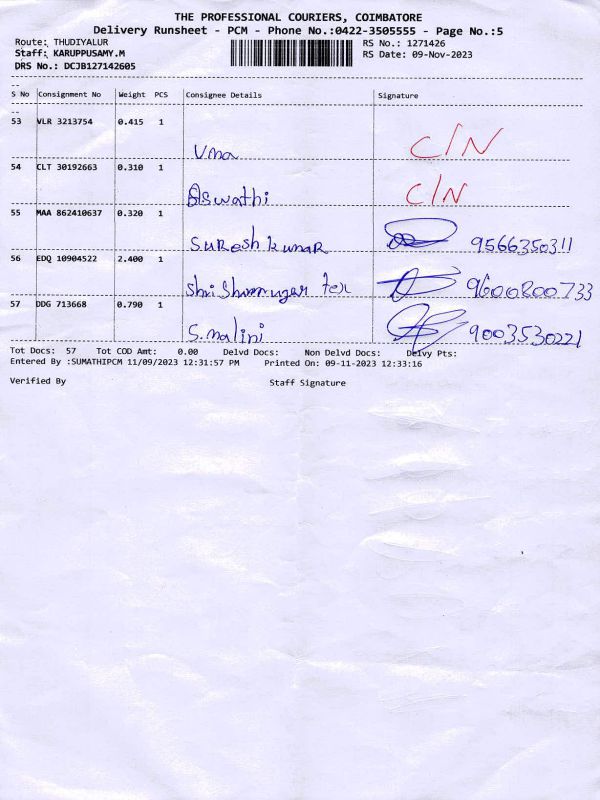 THE PROFESSIONAL COURIERS, COIMBATORE
Delivery Runsheet - PCM - Phone No.:0422-3505555 - Page No.:5
Route: THUDIYALUR RS No.: 1271426
Staff: KARUPPUSAMY.M RS Date: 09-Nov-2023
DRS No.: DCJB127142605
S No Consignment No Weight PCS Consignee Details Signature
53 VLR 3213754 0.415 1
Uma C/N
54 CLT 30192663 0.310 1
Aswathi C/N
55 MAA 862410637 0.320 1
Suresh kumar 9566350311
56 EDQ 10904522 2.400 1
Shri Shanmugar Tex 9600800733
57 DDG 713668 0.790 1
S.malini 9003530221
Tot Docs: 57 Tot COD Amt: 0.00 Delvd Docs: Non Delvd Docs: Delvy Pts:
Entered By :SUMATHIPCM 11/09/2023 12:31:57 PM Printed On: 09-11-2023 12:33:16
Verified By Staff Signature